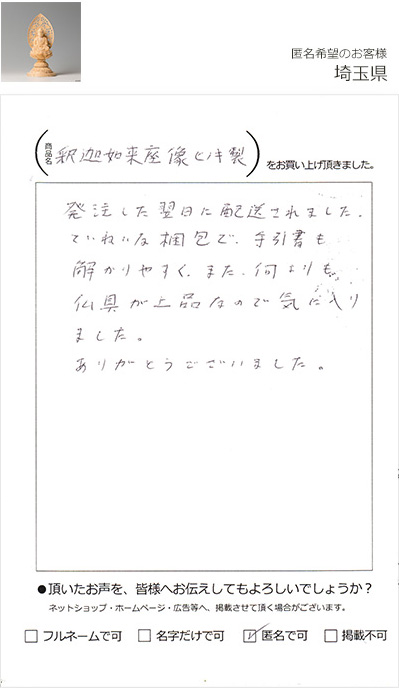 匿名希望のお客様
埼玉県
商品名
(釈迦如来座像ヒノキ製)をお買い上げ頂きました。
発注した翌日に配送されました。
ていねいな梱包で、手引書も
解かりやすく、また、何よりも、
仏具が上品なので気に入り
ました。
ありがとうございました。
●頂いたお声を、皆様へお伝えしてもよろしいでしょうか？
ネットショップ・ホームページ・広告等へ、掲載させて頂く場合がございます。
□フルネームで可 □名字だけで可 ☑匿名で可 □掲載不可